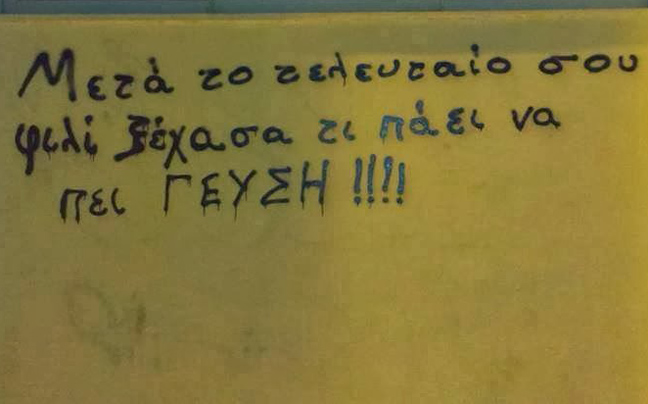 Μετά το τελευταίο σου
φιλί ξέχασα τι πάει να
πει ΓΕΥΣΗ !!!!